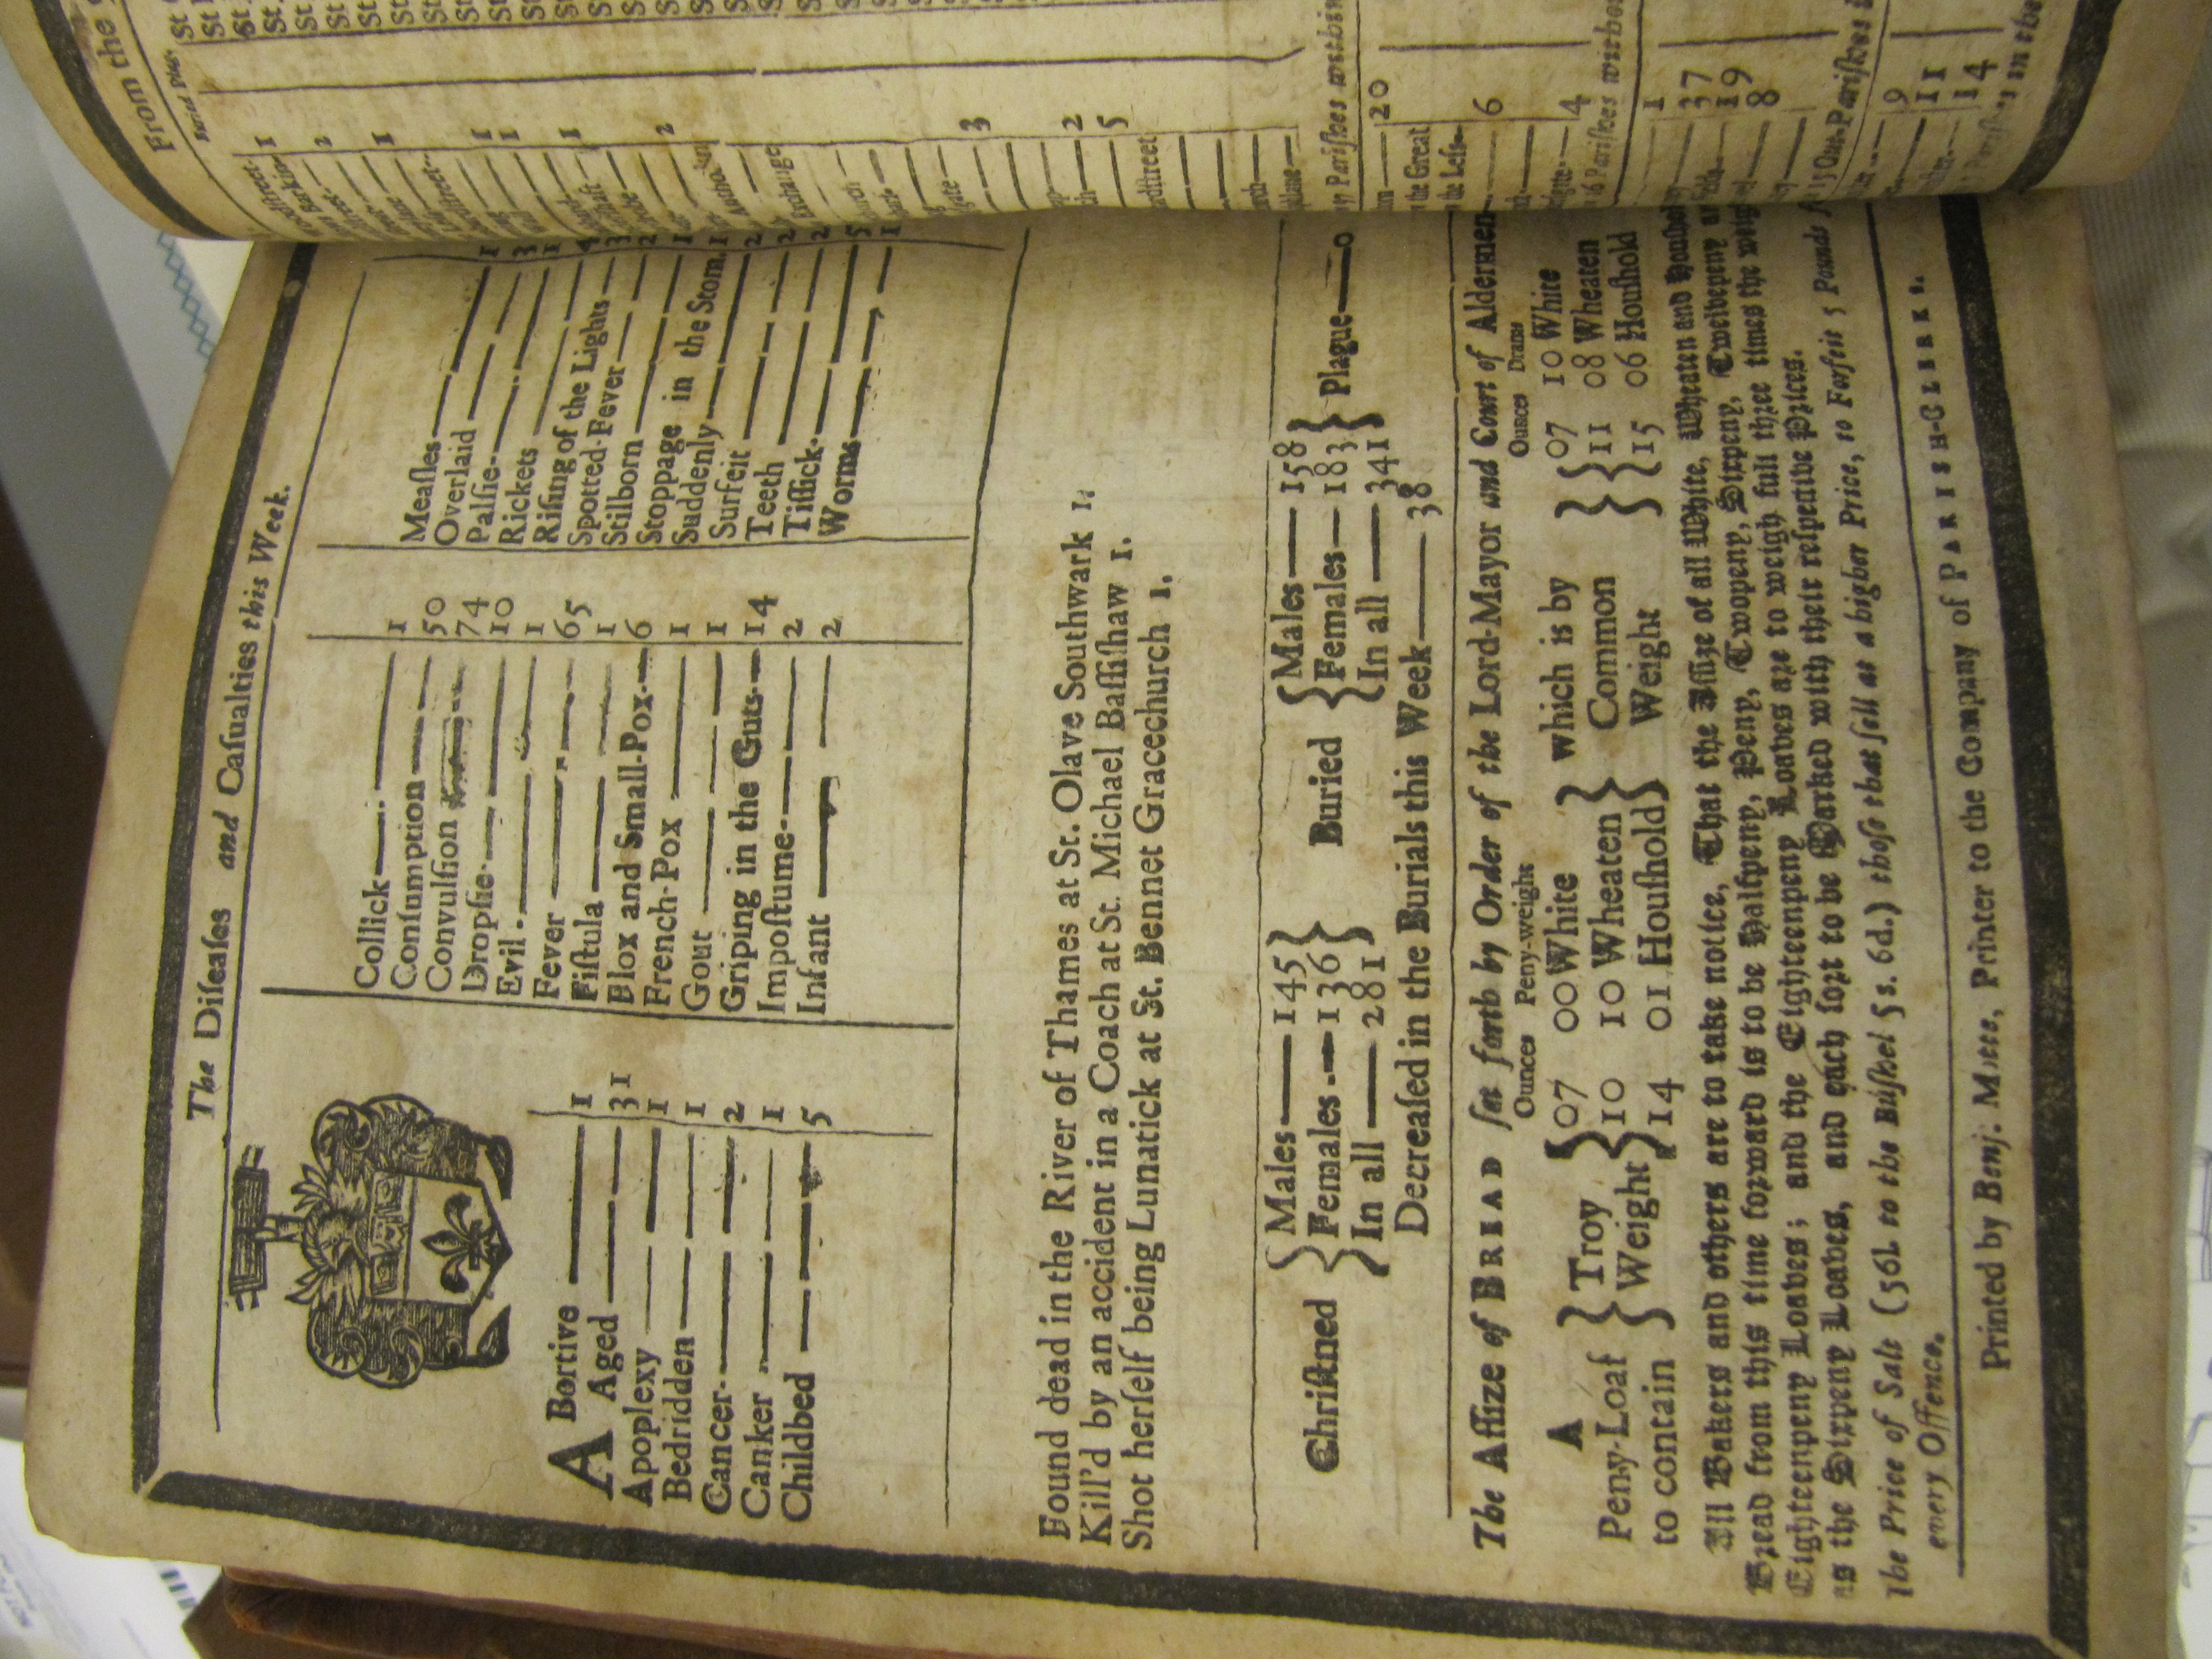 The Diſeaſes and Caſualties this Week.
ABortive 1
Aged 31
Apoplexy 1
Bedridden 1
Cancer 2
Canker 1
Childbed 5
Collick 1
Conſumption 50
Convulſion 74
Dropſie 10
Evil 1
Fever 65
Fiſtula 1
Flox and Small-Pox 6
French-Pox 1
Gout 1
Griping in the Guts 14
Impoſtume 2
Infant 2
Meaſles 1
Overlaid 3
Palſie 1
Rickets 4
Riſing of the Lights 3
Spotted-Fever 2
Stilborn 1
Stoppage in the Stom. 1
Suddenly 2
Surfeit 2
Teeth 2
Tiſſick 5
Worms 1
Found dead in the River of Thames at St. Olave Southwark 1.
Kill'd by an accident in a Coach at St. Michael Baſſiſhaw 1.
Shot herſelf being Lunatick at St. Bennet Gracechurch 1.
Chriſtned { Males 145 Females 136 In all 281 } Buried { Males 158 Females 183 In all 341 } Plague 0
Decreaſed in the Burials this Week 38
The Aſſize of BREAD ſet forth by Order of the Lord-Mayor and Court of Aldermen
Ounces Peny-weights Ounces Drams
A Peny-Loaf to contain } Troy Weight { 07 00 White } which is by Common Weight { 07 10 White
10 10 Wheaten 11 08 Wheaten
14 01 Houſhold 15 06 Houſhold
All Bakers and others are to take notice, That the Aſſize of all White, Wheaten and Houſhold
Bread from this time forward is to be Halfpeny, Peny, Twopeny, Sixpeny, Twelvepeny a
Eighteenpeny Loaves; and the Eighteenpeny Loaves are to weigh full three times the weig
as the Sixpeny Loaves, and each ſort to be Marked with their reſpective Prices.
The Price of Salt (56l. to the Buſhel 5s. 6d.) thoſe that ſell at a higher Price, to Forfeit 5 Pounds f
every Offence.
Printed by Benj. Motte, Printer to the Company of PARISH-CLERKS.
From the
Buried Plag.
Exchange
Pariſhes within
20
the Great
the Leſs 6
4
16 Pariſhes witho
1
37
19
8
15 Out-Pariſhes
9
11
14
in the